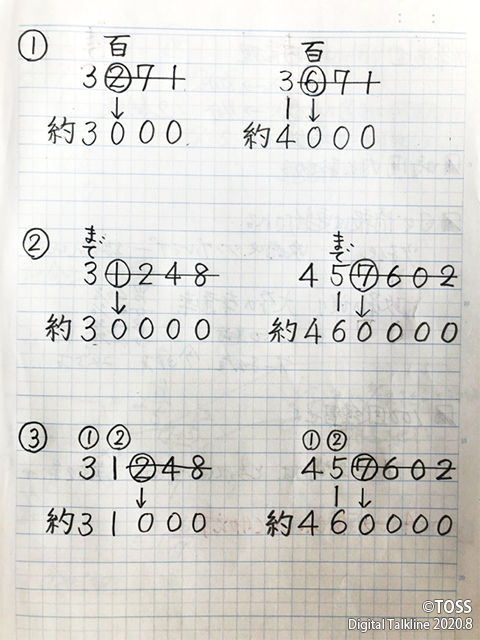 ① 百 百
3②71 3⑥71
↓ 1↓
約3000 約4000
② まで まで
3①248 45⑦602
↓ 1↓
約30000 約460000
③ ①② ①②
31②48 45⑦602
↓ 1↓
約31000 約460000
©TOSS
Digital Talkline 2020.8